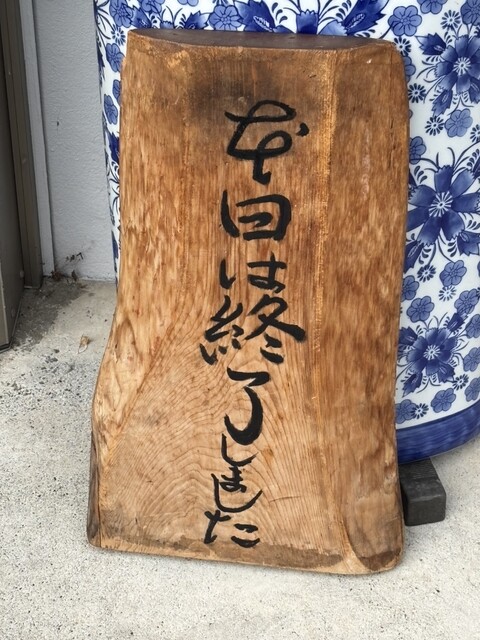 本日は終了しました